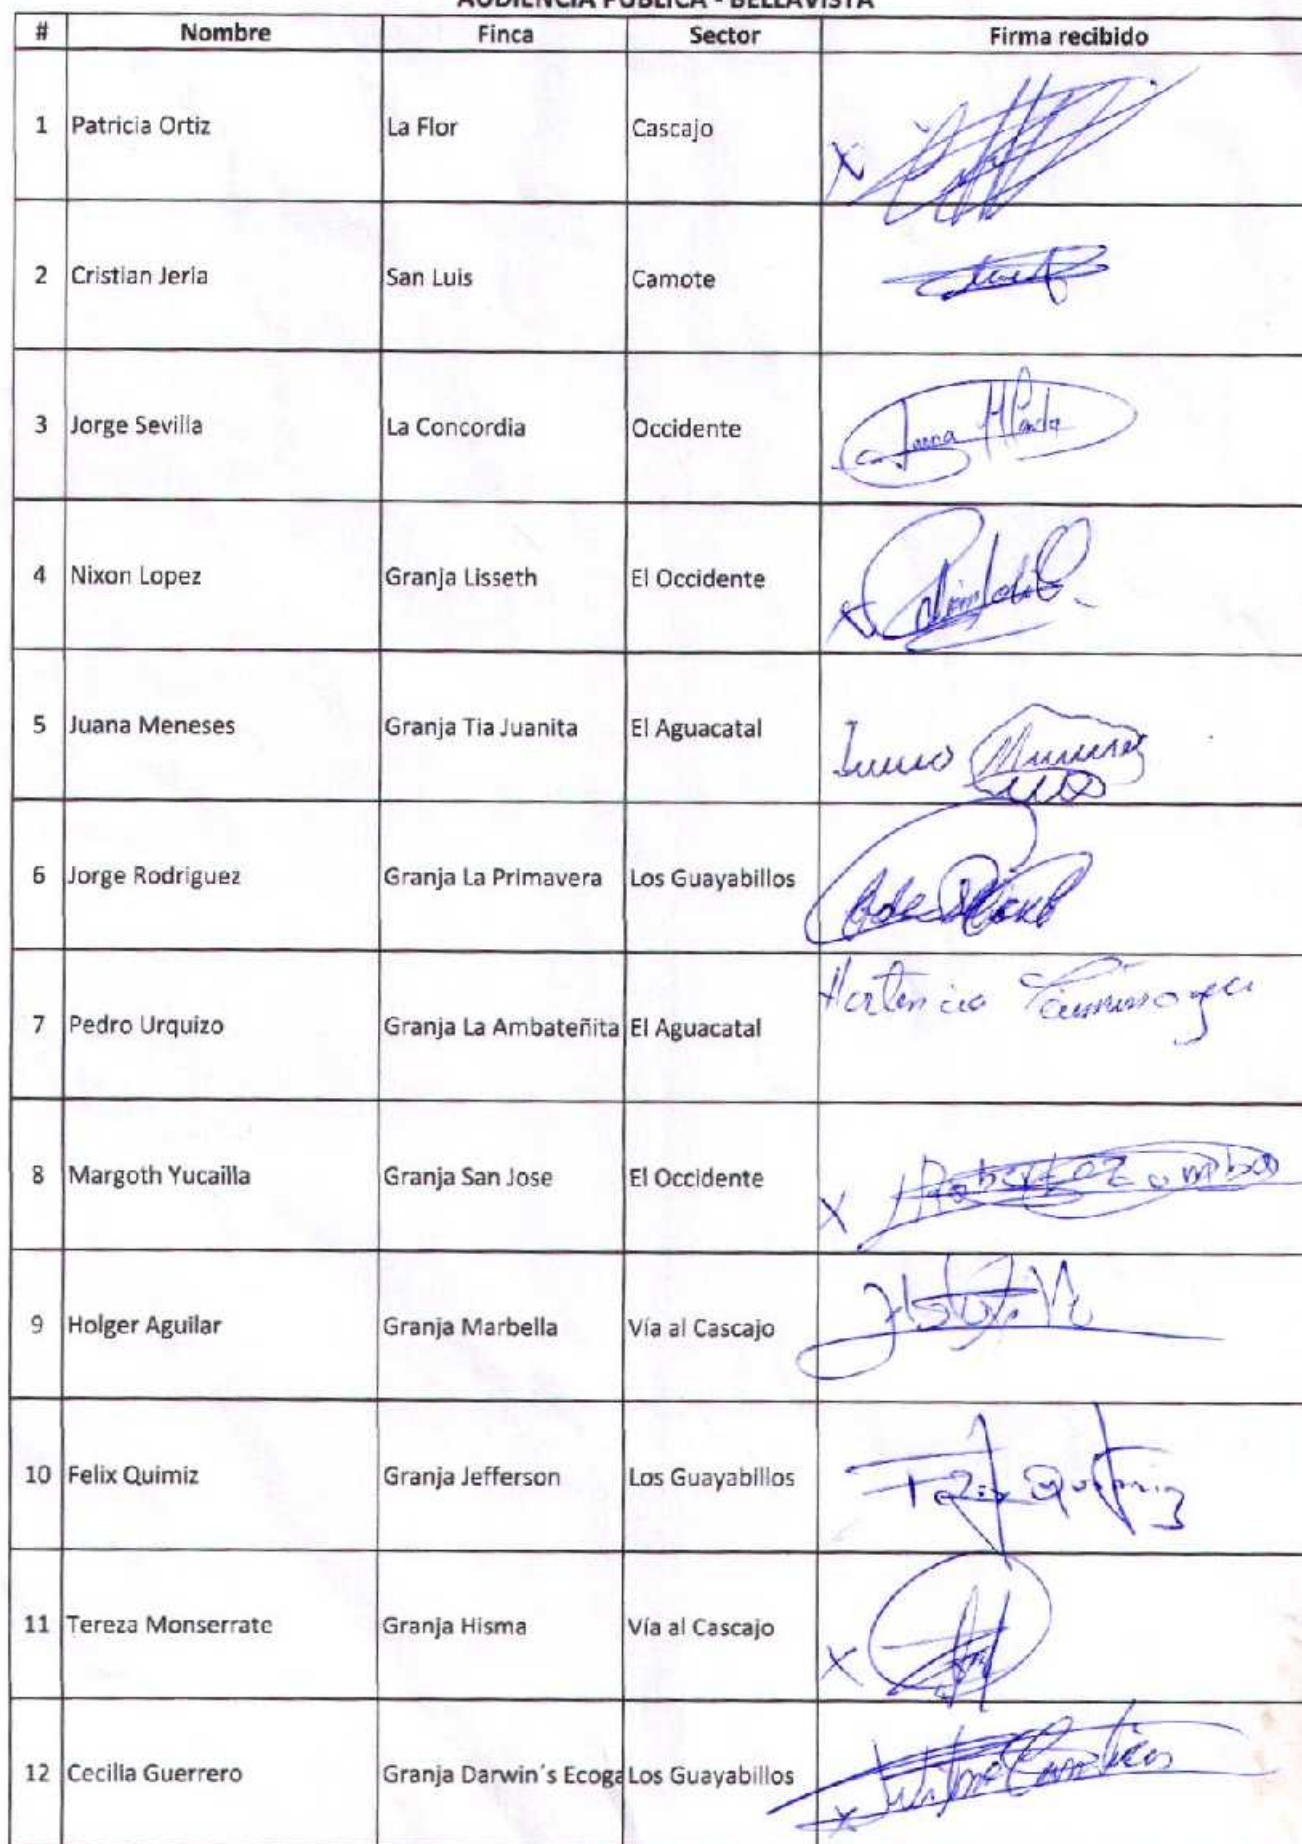 AUDIENCIA PÚBLICA - BELLAVISTA
# Nombre Finca Sector Firma recibido
1 Patricia Ortiz La Flor Cascajo X
2 Cristian Jeria San Luis Camote
3 Jorge Sevilla La Concordia Occidente
4 Nixon Lopez Granja Lisseth El Occidente X
5 Juana Meneses Granja Tia Juanita El Aguacatal
6 Jorge Rodriguez Granja La Primavera Los Guayabillos
7 Pedro Urquizo Granja La Ambateñita El Aguacatal Hortencia
8 Margoth Yucailla Granja San Jose El Occidente X
9 Holger Aguilar Granja Marbella Vía al Cascajo
10 Felix Quimiz Granja Jefferson Los Guayabillos
11 Tereza Monserrate Granja Hisma Vía al Cascajo X
12 Cecilia Guerrero Granja Darwin´s Ecoga Los Guayabillos X